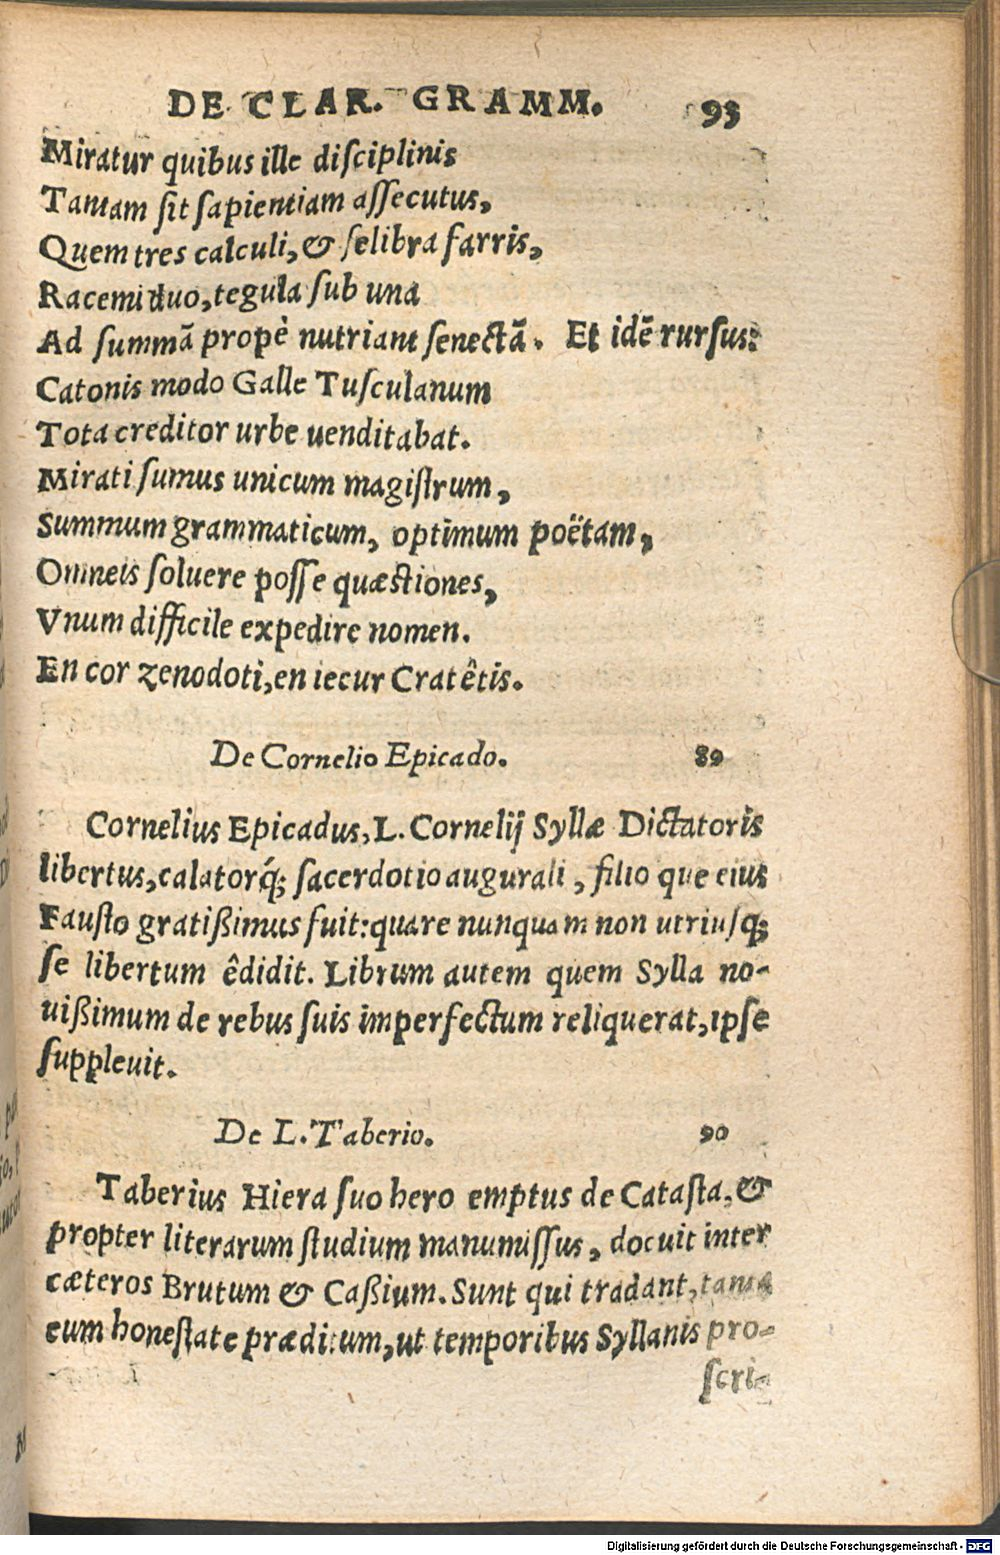 DE CLAR. GRAMM. 93
Miratur quibus ille diſciplinis
Tantam ſit ſapientiam aſſecutus,
Quem tres calculi, & ſelibra farris,
Racemi duo, tegula ſub una
Ad ſummã propè nutriant ſenectã. Et idẽ rurſus:
Catonis modo Galle Tuſculanum
Tota creditor urbe uenditabat.
Mirati ſumus unicum magiſtrum,
Summum grammaticum, optimum poëtam,
Omneis ſoluere poſſe quæſtiones,
Vnum difficile expedire nomen.
En cor zenodoti, en iecur Cratêtis.
De Cornelio Epicado. 89
Cornelius Epicadus, L. Cornelij Syllæ Dictatoris
libertus, calatorq́; ſacerdotio augurali, filio que eius
Fauſto gratißimus fuit: quare nunquam non utriuſq;
ſe libertum êdidit. Librum autem quem Sylla no-
uißimum de rebus ſuis imperfectum reliquerat, ipſe
ſuppleuit.
De L. Taberio. 90
Taberius Hiera ſuo hero emptus de Cataſta, &
propter literarum ſtudium manumiſſus, docuit inter
cæteros Brutum & Caßium. Sunt qui tradant, tanta
eum honeſtate præditum, ut temporibus Syllanis pro-
ſcri-
Digitalisierung gefördert durch die Deutsche Forschungsgemeinschaft - DFG